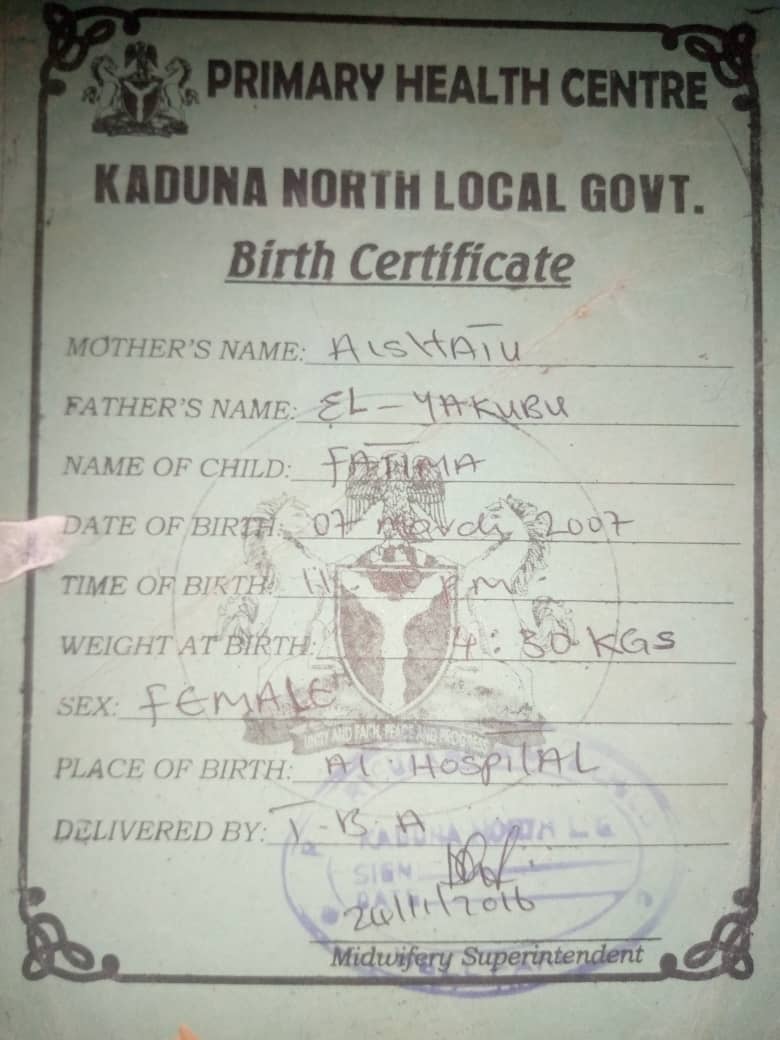 PRIMARY HEALTH CENTRE
KADUNA NORTH LOCAL GOVT.
Birth Certificate
MOTHER'S NAME: AISHATU
FATHER'S NAME: EL-YAKUBU
NAME OF CHILD: FATIMA
DATE OF BIRTH: 07 March 2007
TIME OF BIRTH: 11 pm
WEIGHT AT BIRTH: 4:30 KGS
SEX: FEMALE
UNITY AND FAITH, PEACE AND PROGRESS
PLACE OF BIRTH: AT HOSPITAL
DELIVERED BY: T.B.A
KADUNA NORTH L.G
SIGN
DATE
24/11/2016
Midwifery Superintendent